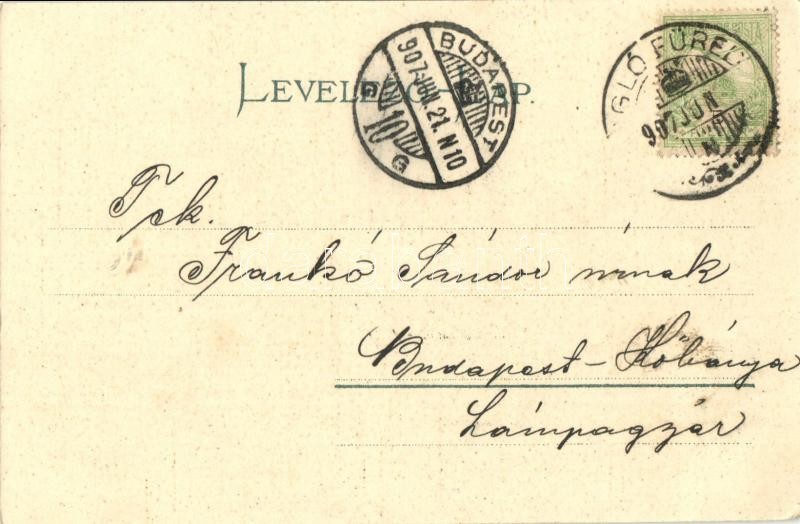 LEVELEZŐ-LAP
BUDAPEST
907 JUN. 21. N10
10
G
GLÓ FÜRED
907 JUN
POSTA
Tek.
Frankó Sándor úrnak
Budapest-Kőbánya
Lámpagyár